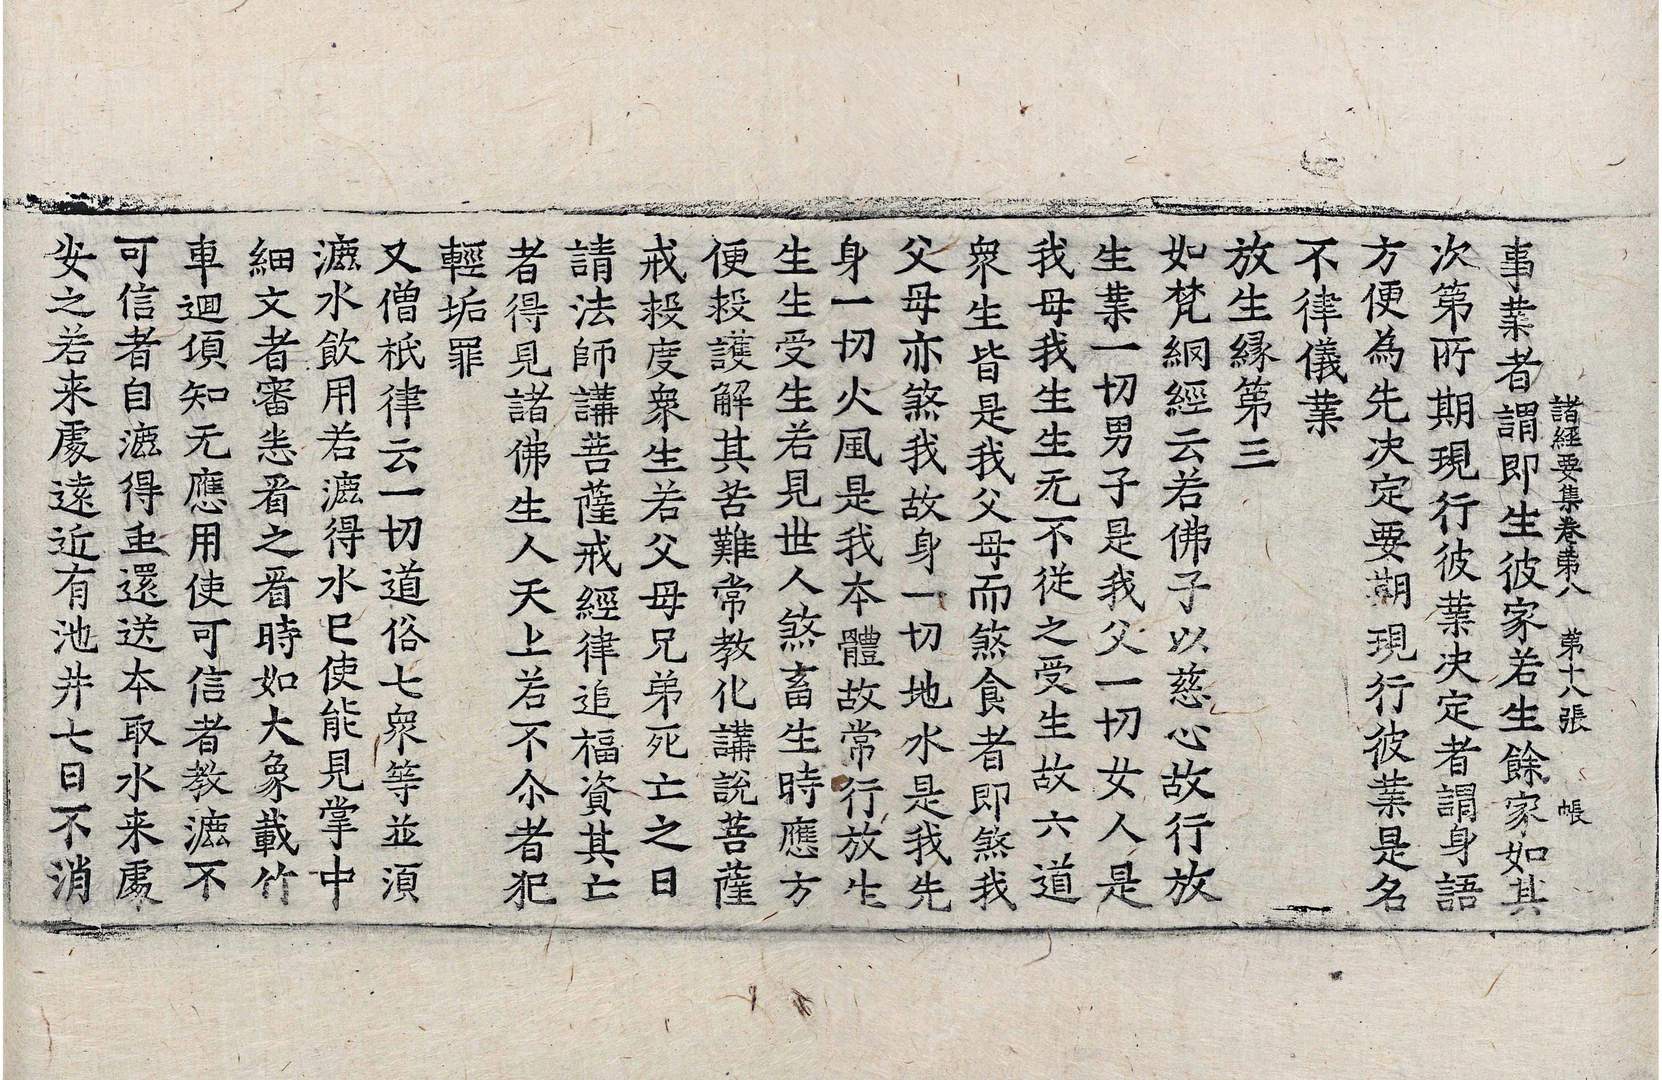 諸經要集卷第八 第十八張 帳
事業者謂即生彼家若生餘家如其
次第所期現行彼業決定者謂身語
方便為先决定要期現行彼業是名
不律儀業
放生緣第三
如梵網經云若佛子以慈心故行放
生業一切男子是我父一切女人是
我母我生生无不從之受生故六道
衆生皆是我父母而煞食者即煞我
父母亦煞我故身一切地水是我先
身一切火風是我本體故常行放生
生生受生若見世人煞畜生時應方
便救護解其苦難常教化講說菩薩
戒救度衆生若父母兄弟死亡之日
請法師講菩薩戒經律追福資其亡
者得見諸佛生人天上若不尒者犯
輕垢罪
又僧祇律云一切道俗七衆等並須
漉水飲用若漉得水已使能見掌中
細文者審悉看之看時如大象載竹
車迴須知无應用使可信者教漉不
可信者自漉得重還送本取水来處
安之若来處遠近有池井七日不消